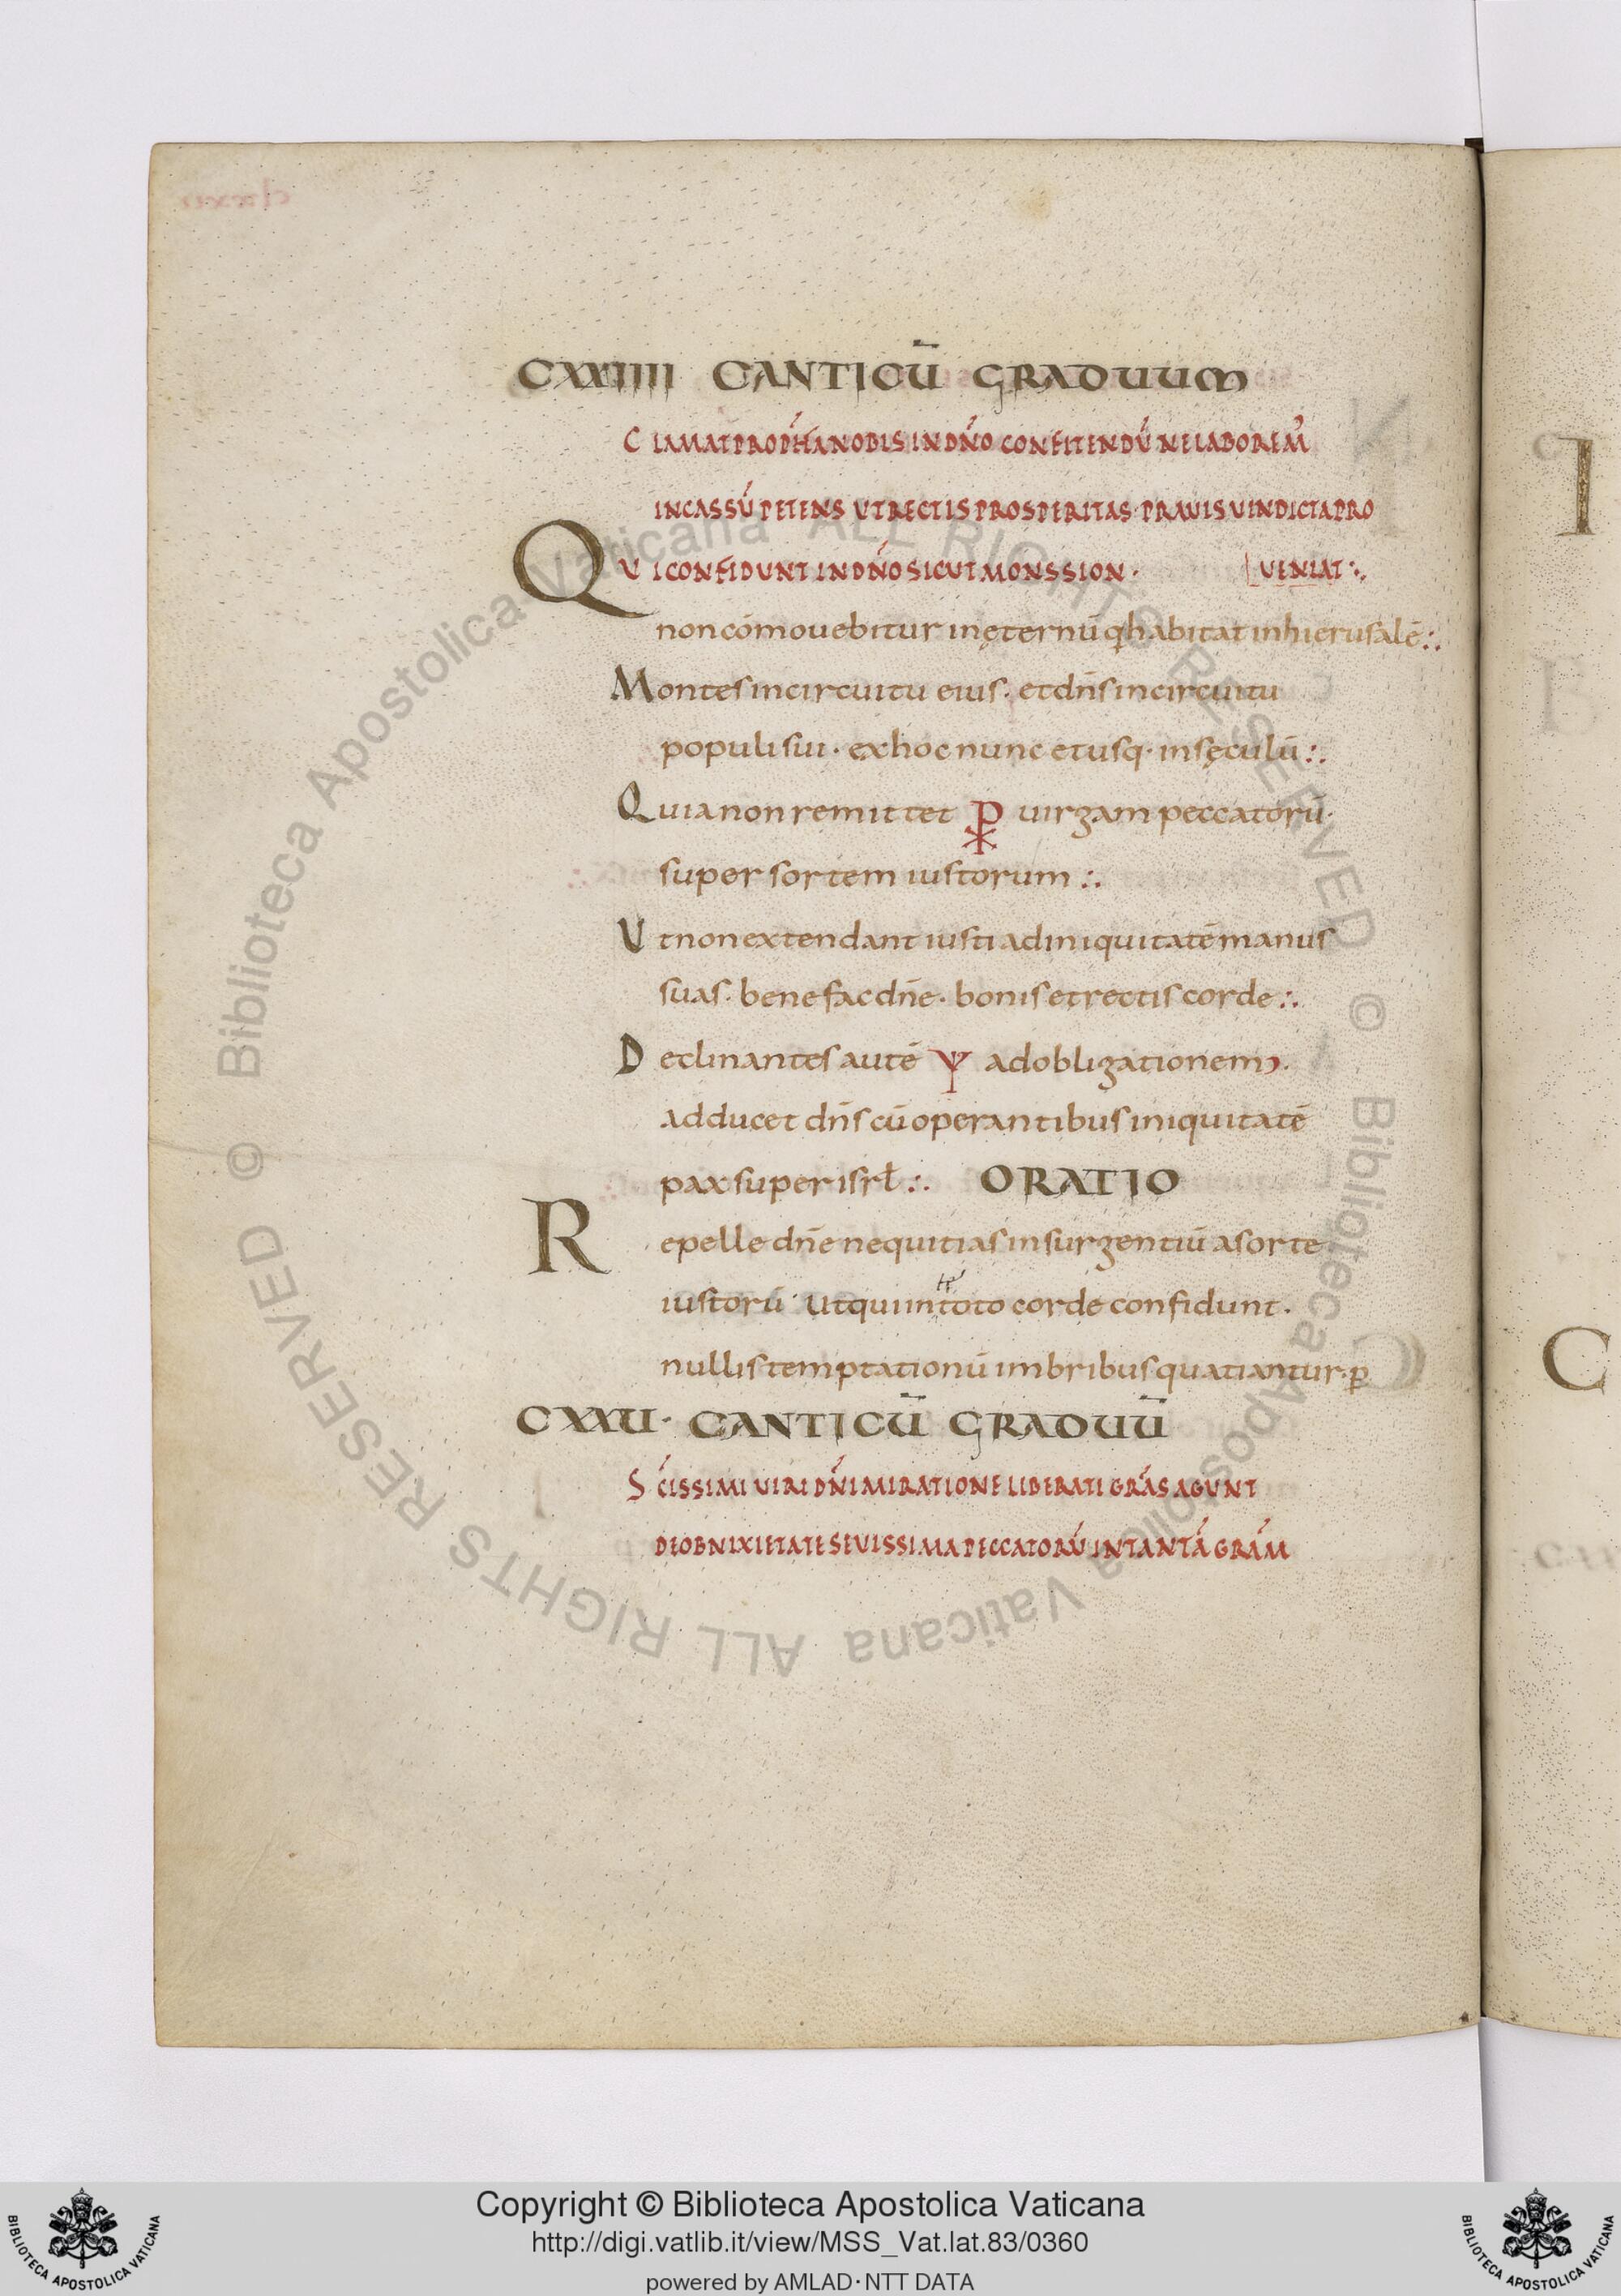 CXXIIII CANTICŪ GRADUUM
CLAMAT PROPHA NOBIS IN DNO CONFITENDŪ NE LABOREM
INCASSŪ PETENS UT RECTIS PROSPERITAS · PRAUIS UINDICTA PRO
QUI CONFIDUNT IN DNO SICUT MONS SION · UENIAT :·
non comouebitur in ęternū q habitat in hierusalē :·
Montes in circuitu eius · et dn̄s in circuitu
populi sui · ex hoc nunc et usq · in sęculū :·
Quia non remittet ⳩ uirgam peccatorū ·
super sortem iustorum :·
Ut non extendant iusti ad iniquitatē manus
suas · benefac dn̄e · bonis et rectis corde :·
Declinantes autē Ψ ad obligationem ·
adducet dn̄s cū operantibus iniquitatē
pax super isrł :· ORATIO
Repelle dn̄e nequitias insurgentiū a sorte
iustorū · ut qui in toto corde confidunt ·
nullis temptationū imbribus quatiantur · p
CXXU · CANTICŪ GRADUŪ
SCISSIMI UIRI DNI MIRATIONE LIBERATI GRAS AGUNT
DEO BNIXIETATE SEUISSIMA PECCATORŪ IN TANTĀ GRAM
Copyright © Biblioteca Apostolica Vaticana
http://digi.vatlib.it/view/MSS_Vat.lat.83/0360
powered by AMLAD·NTT DATA
BIBLIOTECA APOSTOLICA VATICANA
BIBLIOTECA APOSTOLICA VATICANA
© Biblioteca Apostolica Vaticana ALL RIGHTS RESERVED
© Biblioteca Apostolica Vaticana ALL RIGHTS RESERVED
I
C